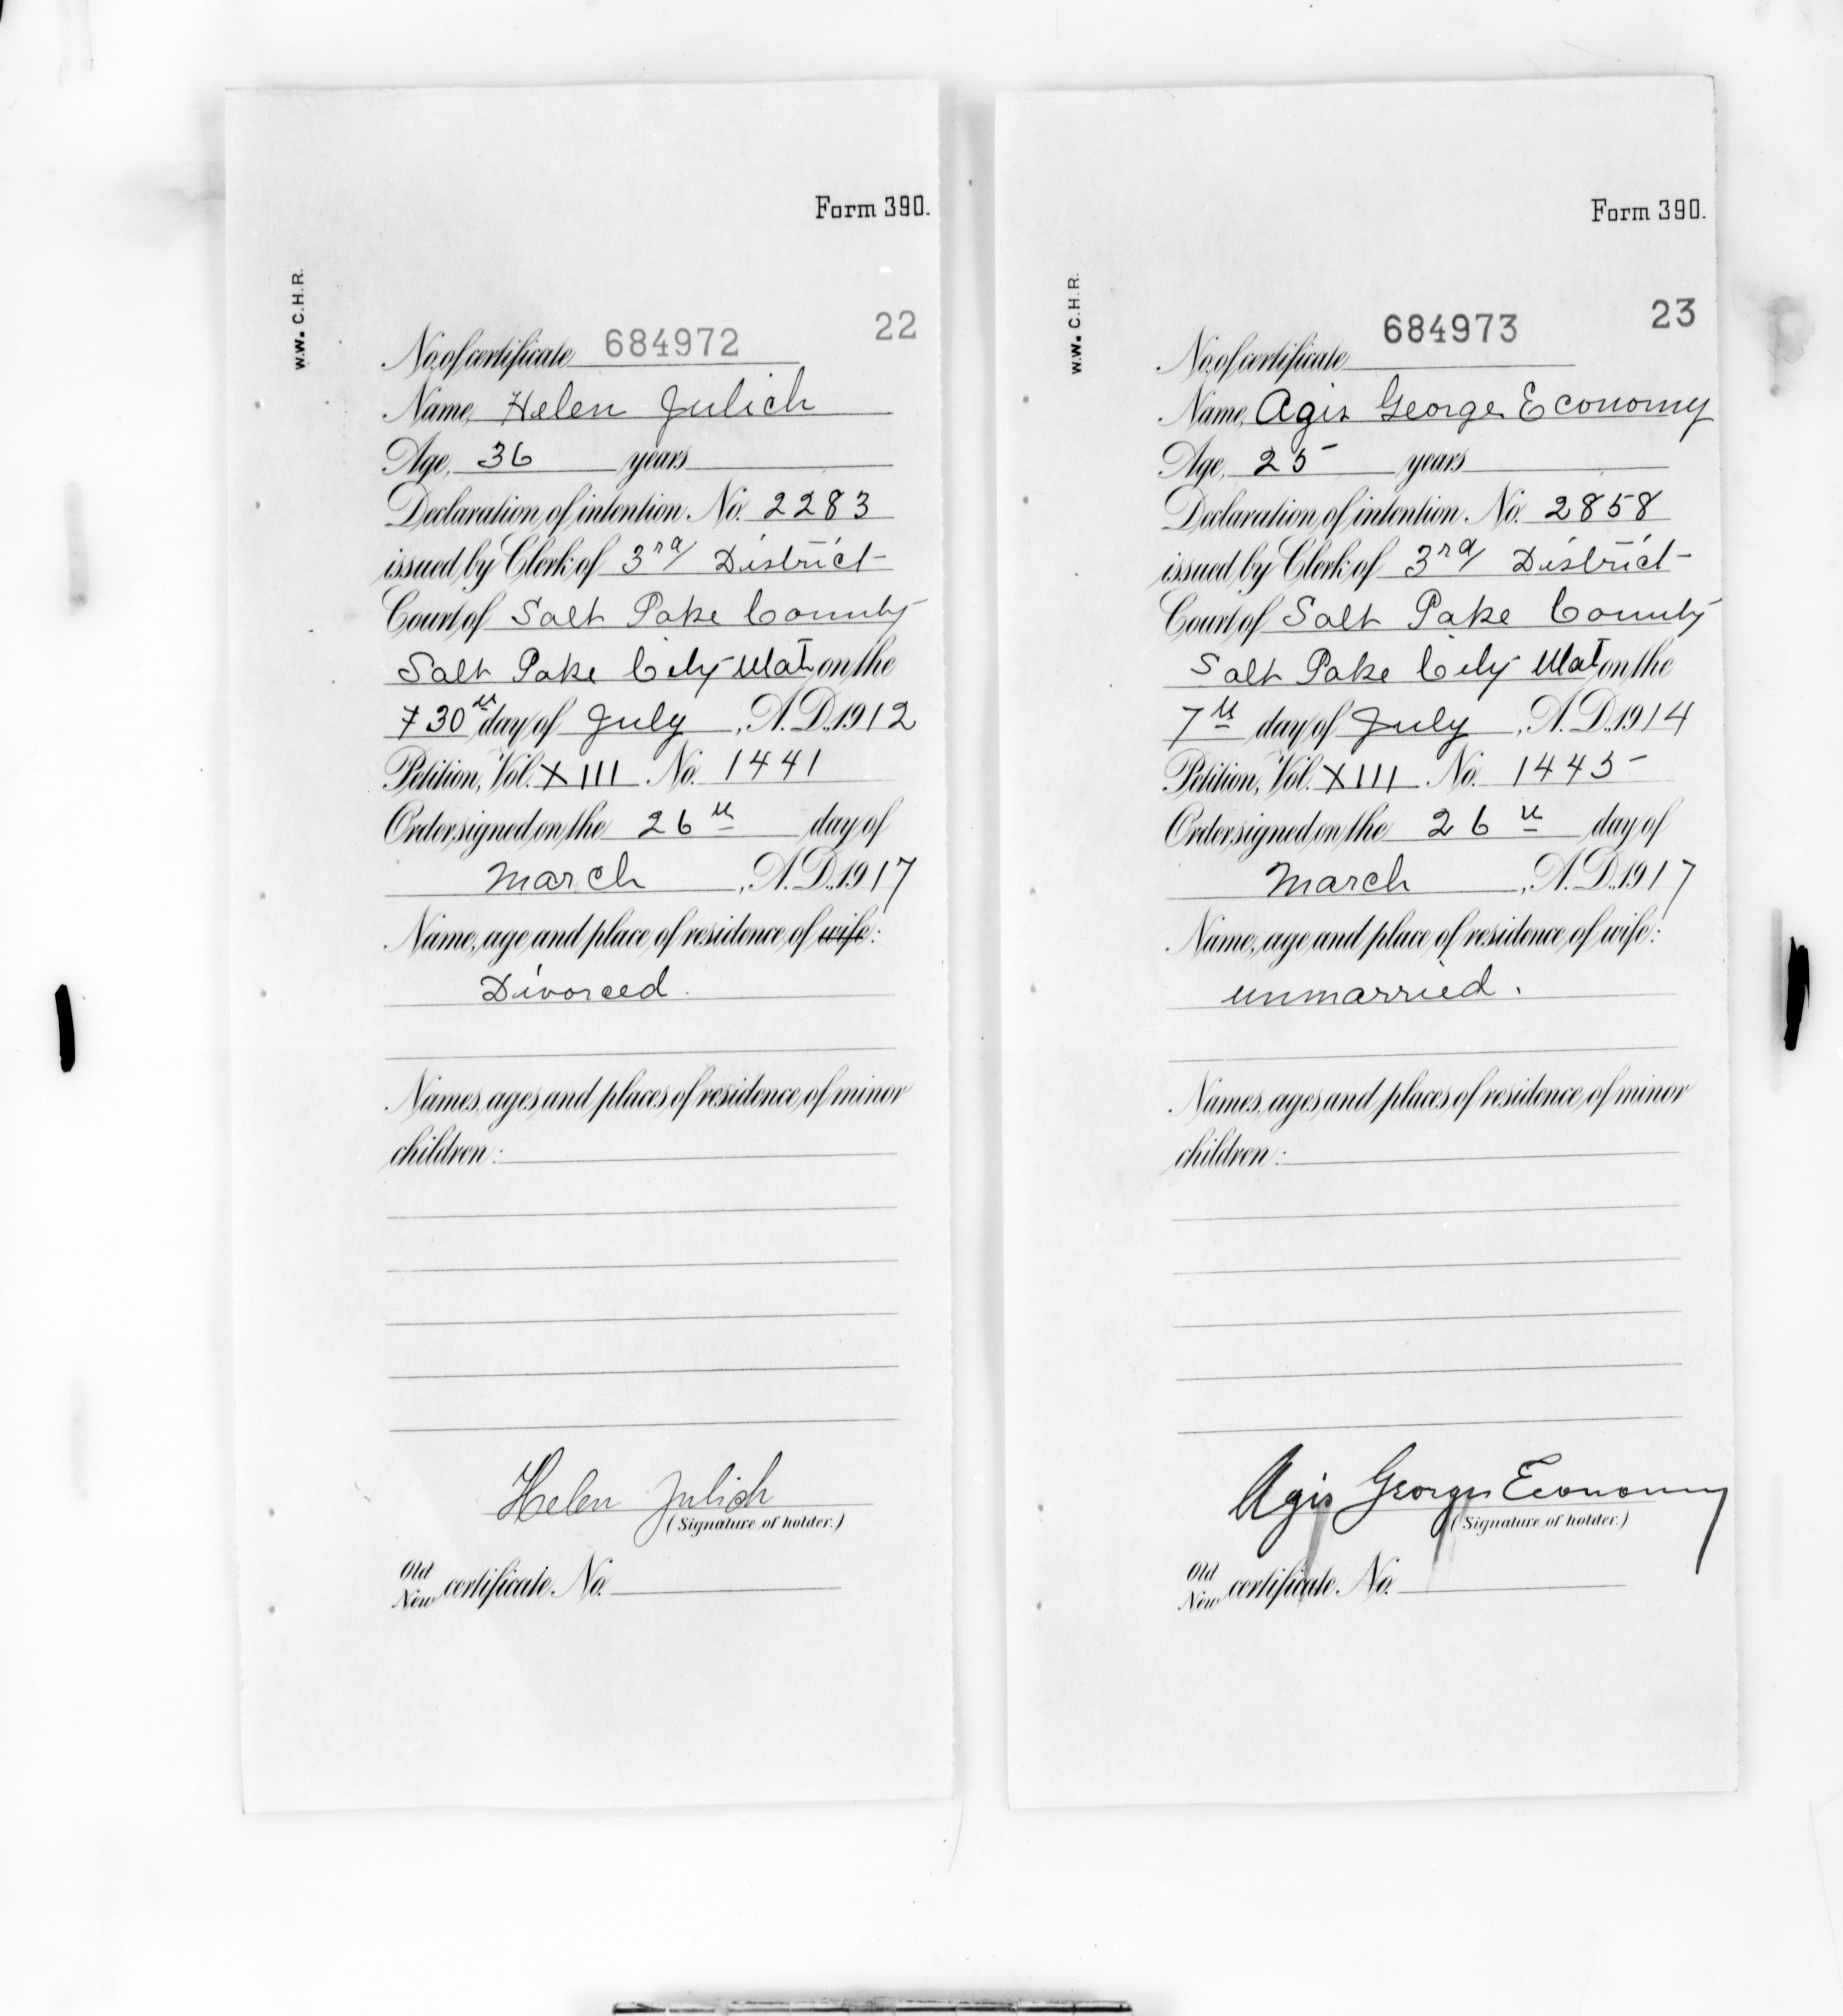 Form 390.
W.W. C.H.R.
22
No. of certificate 684972
Name, Helen Julich
Age, 36 years
Declaration of intention No. 2283
issued by Clerk of 3rd District
Court of Salt Lake County
Salt Lake City Utah on the
7 30th day of July, A.D. 1912
Petition, Vol. XIII No. 1441
Order signed on the 26th day of
March, A.D. 1917
Name, age and place of residence of wife:
Divorced.
Names, ages and places of residence of minor
children:
Helen Julich
(Signature of holder.)
Old
New certificate No.
Form 390.
W.W. C.H.R.
23
684973
No. of certificate
Name, Agis George Economy
Age, 25 years
Declaration of intention No. 2858
issued by Clerk of 3rd District
Court of Salt Lake County
Salt Lake City Utah on the
7th day of July, A.D. 1914
Petition, Vol. XIII No. 1445
Order signed on the 26th day of
March, A.D. 1917
Name, age and place of residence of wife:
unmarried.
Names, ages and places of residence of minor
children:
Agis George Economy
(Signature of holder.)
Old
New certificate No.